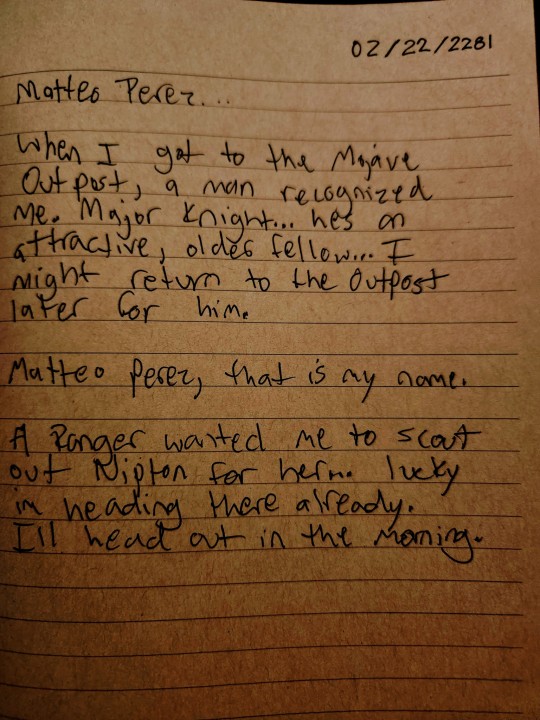 02/22/2281
Matteo Perez...
When I got to the Mojave
Outpost, a man recognized
me. Major Knight... hes an
attractive, older fellow... I
might return to the Outpost
later for him.
Matteo Perez, that is my name.
A Ranger wanted me to scout
out Nipton for her... lucky
im heading there already.
I'll head out in the morning.